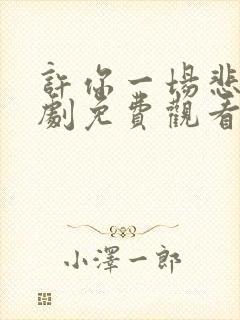 許你一場悲
劇免費觀看
小澤一郎